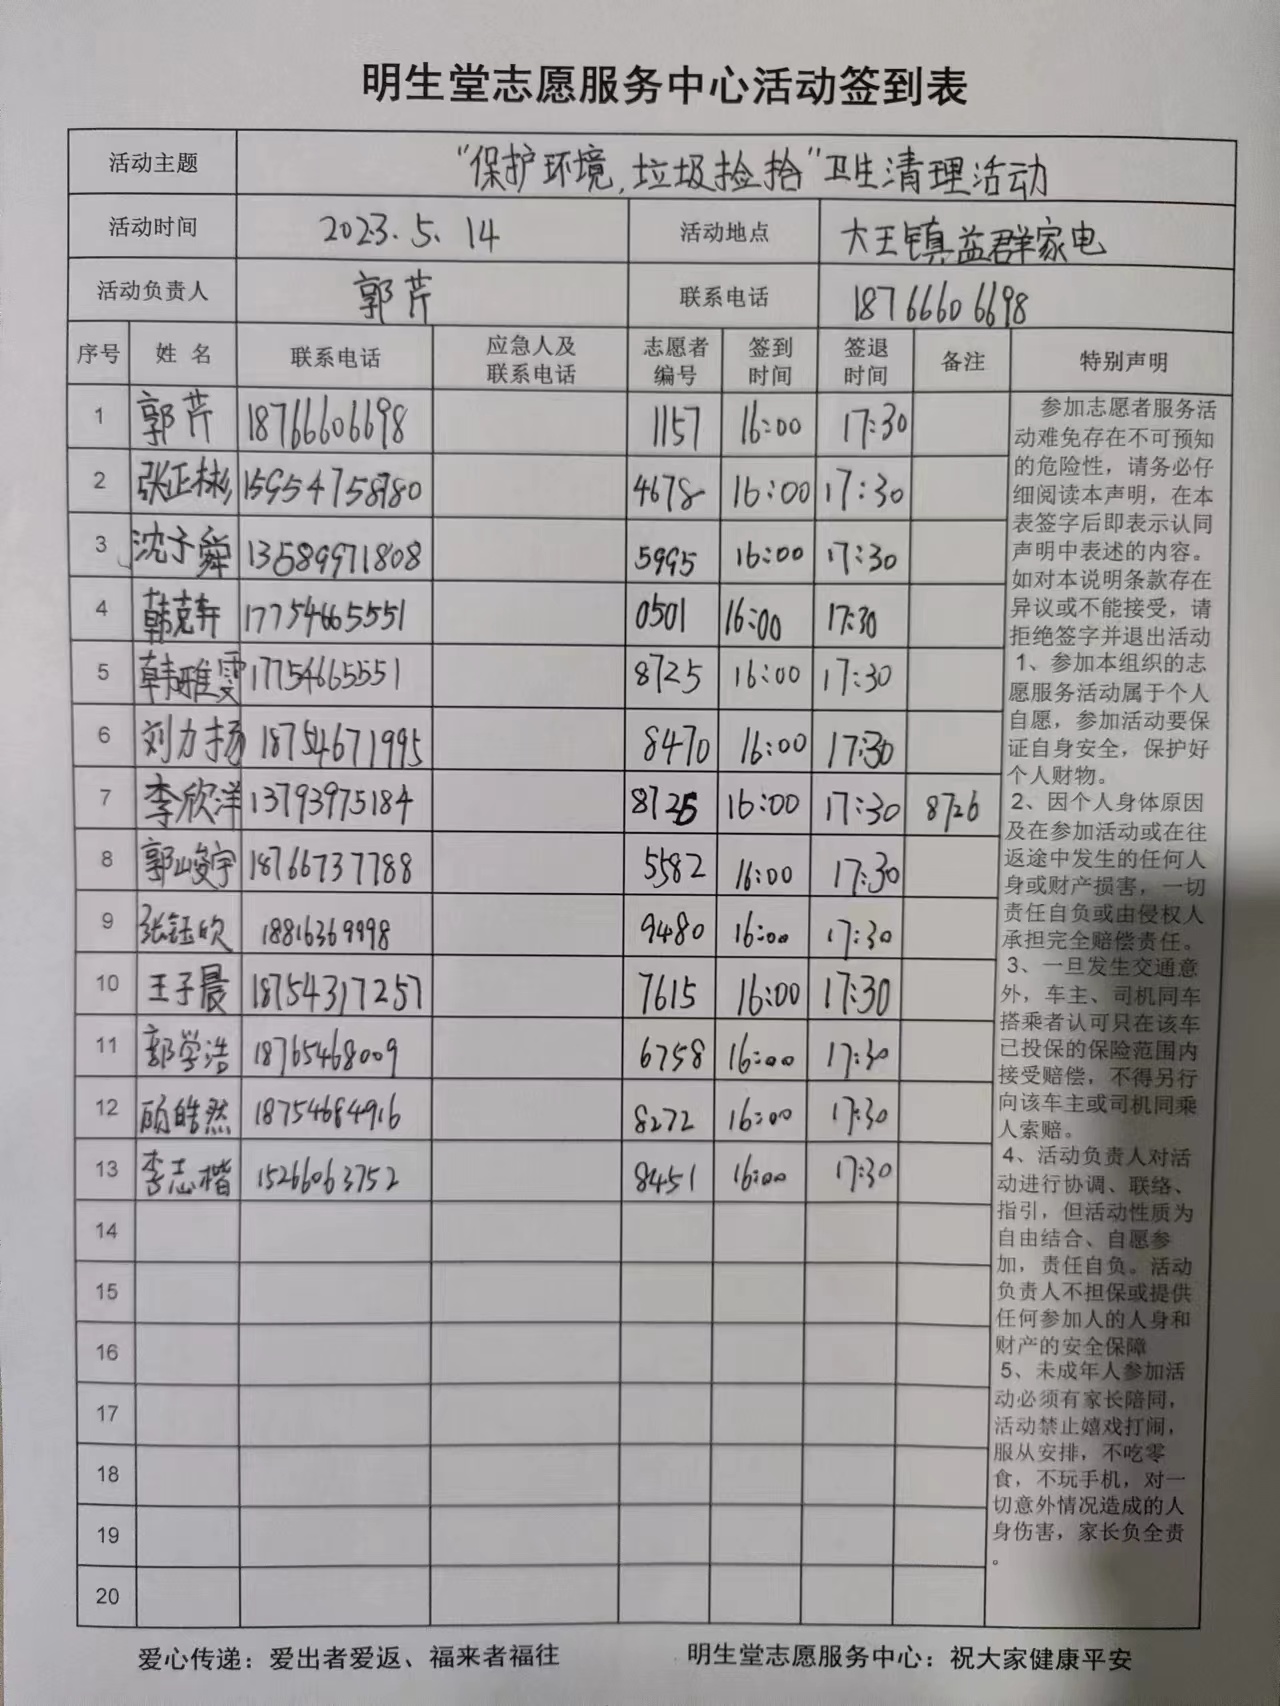 明生堂志愿服务中心活动签到表
活动主题 "保护环境,垃圾捡拾"卫生清理活动
活动时间 2023.5.14 活动地点 大王镇益群家电
活动负责人 郭芹 联系电话 18766606698
序号 姓名 联系电话 应急人及联系电话 志愿者编号 签到时间 签退时间 备注 特别声明
1 郭芹 18766606698 1157 16:00 17:30
2 张正彬 15954758780 4678 16:00 17:30
3 沈予舜 13589971808 5995 16:00 17:30
4 韩克轩 17754665551 0501 16:00 17:30
5 韩雅雯 17754665551 8725 16:00 17:30
6 刘力扬 18754671995 8470 16:00 17:30
7 李欣洋 13793975184 16:00 17:30 8726
8 郭峻宇 18766737788 5582 16:00 17:30
9 张钰欣 18816369998 9480 16:00 17:30
10 王子晨 18754317257 7615 16:00 17:30
11 郭学浩 18765468009 6758 16:00 17:30
12 顾皓然 18754684916 8272 16:00 17:30
13 李志楷 15266063752 8451 16:00 17:30
14
15
16
17
18
19
20
参加志愿者服务活
动难免存在不可预知
的危险性，请务必仔
细阅读本声明，在本
表签字后即表示认同
声明中表述的内容。
如对本说明条款存在
异议或不能接受，请
拒绝签字并退出活动
1、参加本组织的志
愿服务活动属于个人
自愿，参加活动要保
证自身安全，保护好
个人财物。
2、因个人身体原因
及在参加活动或在往
返途中发生的任何人
身或财产损害，一切
责任自负或由侵权人
承担完全赔偿责任。
3、一旦发生交通意
外，车主、司机同车
搭乘者认可只在该车
已投保的保险范围内
接受赔偿，不得另行
向该车主或司机同乘
人索赔。
4、活动负责人对活
动进行协调、联络、
指引，但活动性质为
自由结合、自愿参
加，责任自负。活动
负责人不担保或提供
任何参加人的人身和
财产的安全保障
5、未成年人参加活
动必须有家长陪同，
活动禁止嬉戏打闹，
服从安排，不吃零
食，不玩手机，对一
切意外情况造成的人
身伤害，家长负全责
。
爱心传递：爱出者爱返、福来者福往 明生堂志愿服务中心：祝大家健康平安